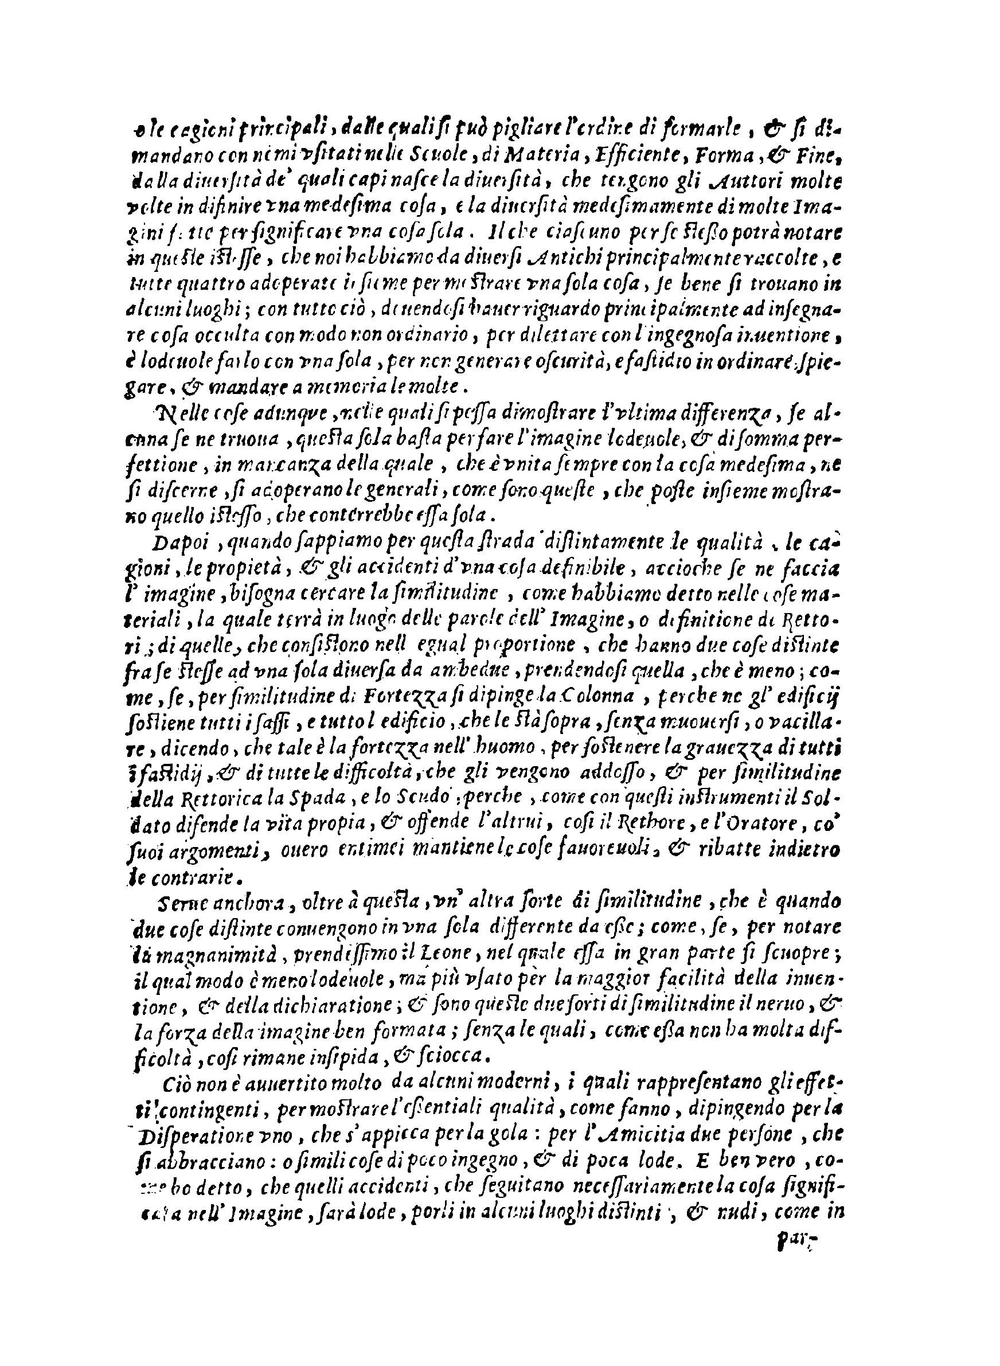 o le cagioni principali, dalle quali si può pigliare l'ordine di formarle, & si di-
mandano con nomi vsitati nelle Scuole, di Materia, Efficiente, Forma, & Fine,
dalla diuersità de' quali capi nasce la diuersità, che tengono gli Auttori molte
volte in difinire vna medesima cosa, e la diuersità medesimamente di molte Ima-
gini fatte per significare vna cosa sola. Il che ciascuno per se stesso potrà notare
in queste istesse, che noi habbiamo da diuersi Antichi principalmente raccolte, e
tutte quattro adoperate insieme per mostrare vna sola cosa, se bene si trouano in
alcuni luoghi; con tutto ciò, douendosi hauer riguardo principalmente ad insegna-
re cosa occulta con modo non ordinario, per dilettare con l'ingegnosa inuentione,
è lodeuole farlo con vna sola, per non generare oscurità, e fastidio in ordinare, spie-
gare, & mandare a memoria le molte.
Nelle cose adunque, nelle quali si possa dimostrare l'vltima differenza, se al-
cuna se ne truoua, questa sola basta per fare l'imagine lodeuole, & di somma per-
fettione, in mancanza della quale, che è vnita sempre con la cosa medesima, ne
si discerne, si adoperano le generali, come sono queste, che poste insieme mostra-
no quello istesso, che conterrebbe essa sola.
Dapoi, quando sappiamo per questa strada distintamente le qualità, le ca-
gioni, le propietà, & gli accidenti d'vna cosa definibile, accioche se ne faccia
l' imagine, bisogna cercare la similitudine, come habbiamo detto nelle cose ma-
teriali, la quale terrà in luogo delle parole dell' Imagine, o definitione de Retto-
ri; di quelle, che consistono nell egual proportione, che hanno due cose distinte
fra se stesse ad vna sola diuersa da ambedue, prendendosi quella, che è meno; co-
me, se, per similitudine di Fortezza si dipinge la Colonna, perche ne gl' edificij
sostiene tutti i sassi, e tutto l edificio, che le stà sopra, senza muouersi, o vacilla-
re, dicendo, che tale è la fortezza nell' huomo, per sostenere la grauezza di tutti
i fastidij, & di tutte le difficoltà, che gli vengono addosso, & per similitudine
della Rettorica la Spada, e lo Scudo, perche, come con questi instrumenti il Sol-
dato difende la vita propia, & offende l'altrui, cosi il Rethore, e l'Oratore, co'
suoi argomenti, ouero entimei mantiene le cose fauoreuoli, & ribatte indietro
le contrarie.
Serue anchora, oltre à questa, vn' altra sorte di similitudine, che è quando
due cose distinte conuengono in vna sola differente da esse; come, se, per notare
la magnanimità, prendessimo il Leone, nel quale essa in gran parte si scuopre;
il qual modo è meno lodeuole, ma più vsato per la maggior facilità della inuen-
tione, & della dichiaratione; & sono queste due sorti di similitudine il neruo, &
la forza della imagine ben formata; senza le quali, come essa non ha molta dif-
ficoltà, cosi rimane insipida, & sciocca.
Ciò non è auuertito molto da alcuni moderni, i quali rappresentano gli effet-
ti contingenti, per mostrare l'essentiali qualità, come fanno, dipingendo per la
Disperatione vno, che s'appicca per la gola: per l'Amicitia due persone, che
si abbracciano: o simili cose di poco ingegno, & di poca lode. E ben vero, co-
me ho detto, che quelli accidenti, che seguitano necessariamente la cosa signifi-
cata nell' Imagine, sarà lode, porli in alcuni luoghi distinti, & nudi, come in
par-